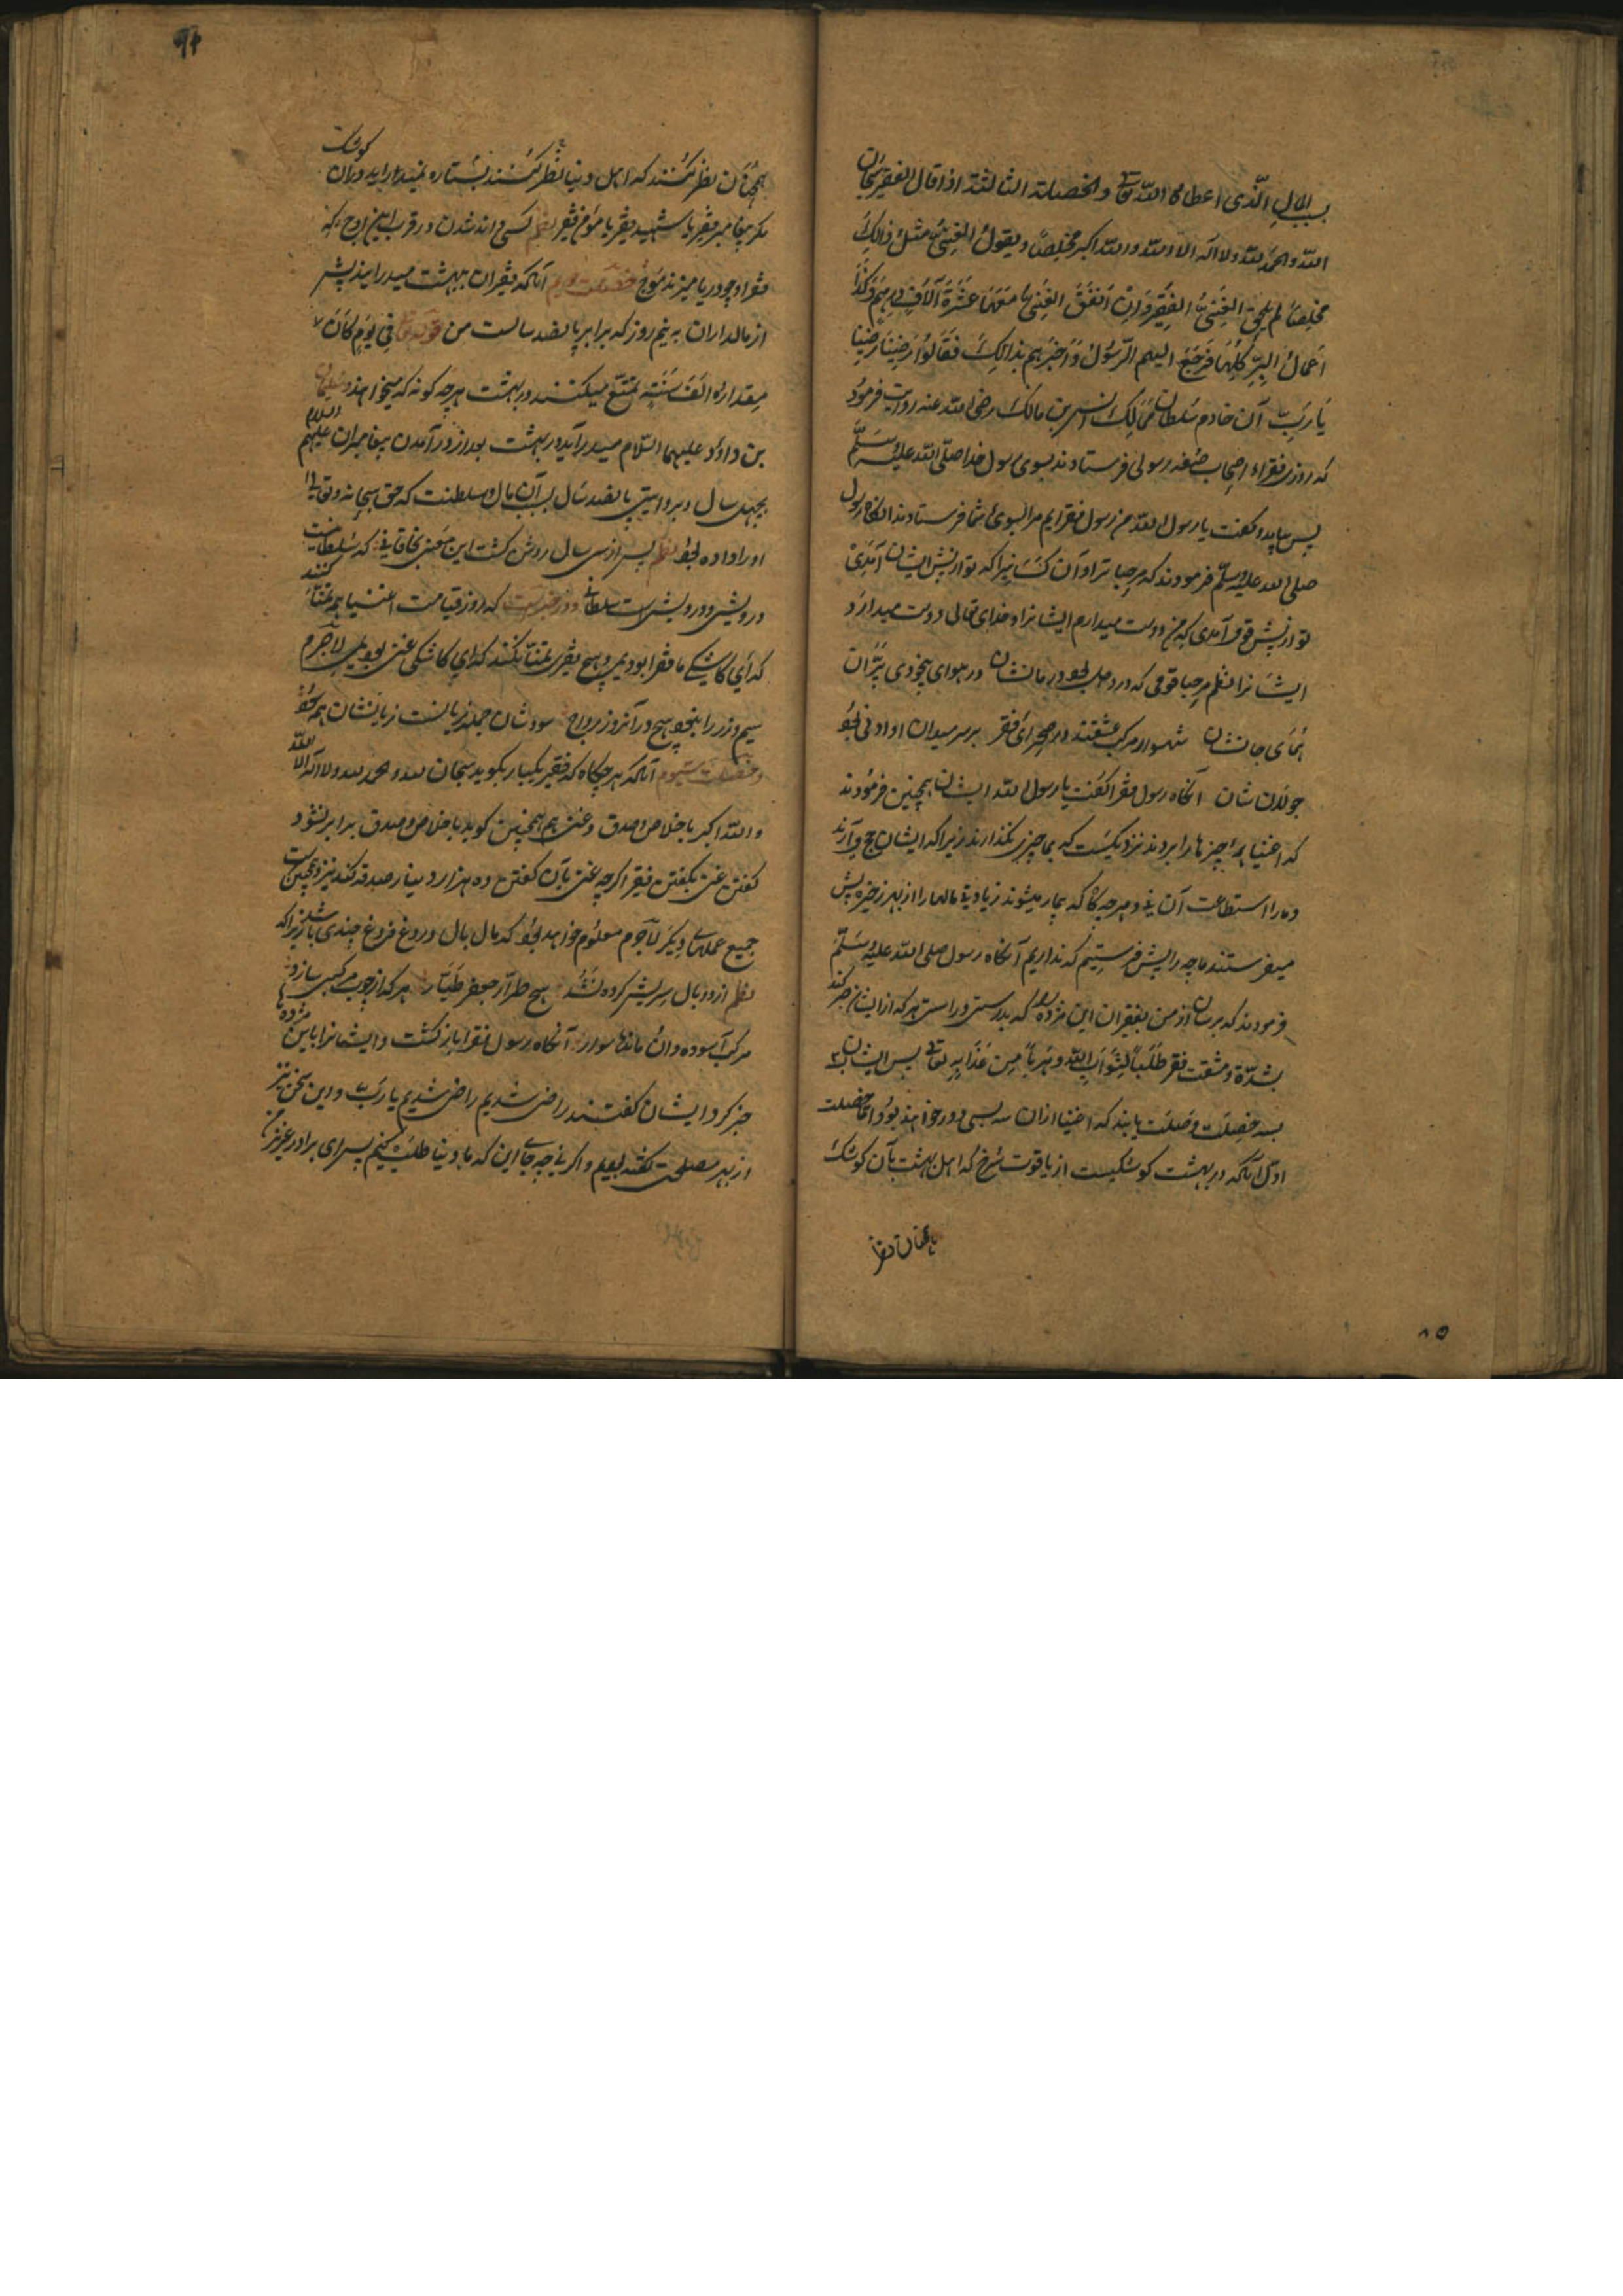 بسبب المال الّذی اعطاه اللّه تعالی والخصلة الثالثة اذا قال الفقیر سبحان
اللّه والحمد للّه ولا اله الا اللّه واللّه اکبر مخلصًا ویقول الغنیّ مثل ذالک
مخلصًا لم یلحق الغنیّ الفقیر وَاِنْ اَنْفَقَ الغنیّ مَعَهَا عَشَرَةَ آلافِ درهمٍ وَکَذَا
اَعْمالُ البِرِّ کُلِّهَا فَرَجَعَ الیهم الرّسُوْلُ وَاَخبَرَهم بذالکَ فَقَالُوْا رَضِیْنَا رَضِیْنَا
یَا رَبِّ آن خادم سلطان ممالک انس بن مالک رضی اللّه عنه روایت فرمود
که روزی فقراء اصحاب صفه رسولی فرستادند بسوی رسول خدا صلّی اللّه علیه وسلّم
پس بیامد و گفت یا رسول اللّه من رسول فقرایم مرا بسوی شما فرستادند انگاه رسول
صلی اللّه علیه وسلّم فرمودند که مرحبا ترا و آن کسانیرا که تو از پیش ایشان آمدی
تو از پیش قومی آمدی که من دوست میدارم ایشانرا و خدای تعالی دوست میدارد
ایشانرا نظم مرحبا قومی که درد دل بود درمانشان در هوای بیخودی پرّان
همای جانشان شهسوار مرکب عشقند در صحرای فقر بر سر میدان او ادنی بود
جولان شان آنگاه رسول فقرا گفت یا رسول اللّه ایشان همچنین فرمودند
که اغنیا همه چیزها را بردند نزدیکست که بما چیزی نگذارند زیرا که ایشان حج می آرند
و ما را استطاعت آن نی و هرچه گاه که بیمار میشوند زیادتی مالها را از بهر ذخیره پیش
میفرستند ما چه را پیش فرستیم که نداریم آنگاه رسول صلی اللّه علیه وسلّم
فرمودند که برسان از من بفقیران این مژده که بدرستی و راستی هرکه از ایشان صبر کند
بشدّة و مشقت فقر طَلَبًا لِثَوَابِ اللّه وهَرَبًا مِن عَذَابِه تعالی پس ایشان
بسه خصلت وصلت یابند که اغنیا ازان سه بسی دور خواهند بود امّا خصلت
اوّل آنکه در بهشت کوشکیست از یاقوت سُرخ که اهل بهشت بآن کوشک
۸۵
۹۴
کوشک
همچنان نظر کنند که اهل دنیا نظر کنند بستاره نمیدراید دران
مگر پیغامبر فقیر یا شهید فقیر یا مؤمن فقیر نظم کسی داند شدن در قرب این اوج که
فقر او چو دریا میزند موج خصلت دویم آنکه فقیران به بهشت میدرایند پیش
از مالداران به نیم روز که برابر پانصد سالست من قوله تعالی فِی یَوْمٍ کَانَ
مِقدارهٗ اَلفَ سَنَةٍ تمتّع میکنند در بهشت هرچه گونه که میخواهند و سلیمان
بن داوٗد علیهما السّلام میدرآید در بهشت بعد از درآمدن پیغامبران علیهم السلام
بچهل سال و بروایتی پانصد سال بسبب آن مال و سلطنت که حق سبحانه وتعالی
او را داده بود نظم پس از سی سال روشن گشت این معنی بخاقانی که سلطانیست
درویشی و درویشیست سلطانی و در خبرست که روز قیامت اغنیا همه تمنّا کنند
که ای کاشکی ما فقرا بودیمی و هیچ فقیری تمنّا نکند که ای کاشکی غنی بودمی لاجرم
سیم و زر را نبود هیچ در آنروز رواج سودشان جمله زیانست زیانشان هم سود
وخصلت سیوم آنکه هرچگاه که فقیر یکبار بگوید سبحان للّه والحمد للّه ولا اله الا اللّه
واللّه اکبر باخلاص و صدق و غنی هم همچنین گوید باخلاص و صدق برابر نشود
گفتن غنی بگفتن فقیر اگرچه غنی بآن گفتن ده هزار دینار صدقه کند نیز و همچنین است
جمیع عملهای دیگر لاجرم معلوم خواهد بود که مال بال دروغ فروغ چندی باشد زیرا که
نظم از دو بال سریش کرده نَشُدْ هیچ طرّار جعفر طیّار هر که از چوب مرکبی سازد
مرکب آسوده دان و ماندها سوار آنگاه رسول فقرا باز گشت و ایشانرا باین مژده‌ها
خبر کرد ایشان گفتند راضی شدیم راضی شدیم یا ربّ و این سخن نیز
از بهر مصلحت گفته بودم و اگر نی چه جای این که ما دنیا طلب کنیم پس ای برادر عزیز